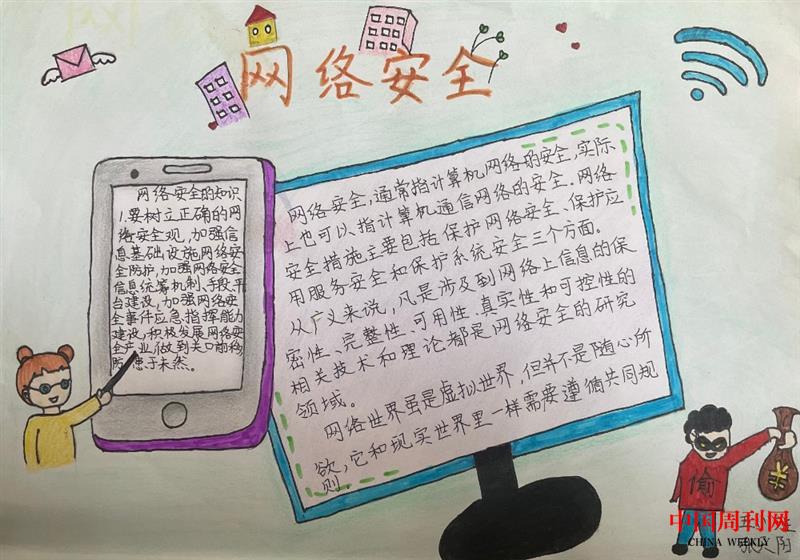 网络安全
网络安全的知识
1.要树立正确的网
络安全观，加强信
息基础设施网络安
全防护，加强网络安全
信息统筹机制、手段、平
台建设，加强网络安
全事件应急指挥能力
建设，积极发展网络安
全产业，做到关口前移，
防患于未然。
网络安全，通常指计算机网络的安全，实际
上也可以指计算机通信网络的安全。网络
安全措施主要包括保护网络安全、保护应
用服务安全和保护系统安全三个方面。
从广义来说，凡是涉及到网络上信息的保
密性、完整性、可用性、真实性和可控性的
相关技术和理论都是网络安全的研究
领域。
网络世界虽是虚拟世界，但并不是随心所
欲，它和现实世界里一样需要遵循共同规
则。
偷
中国周刊网
CHINA WEEKLY